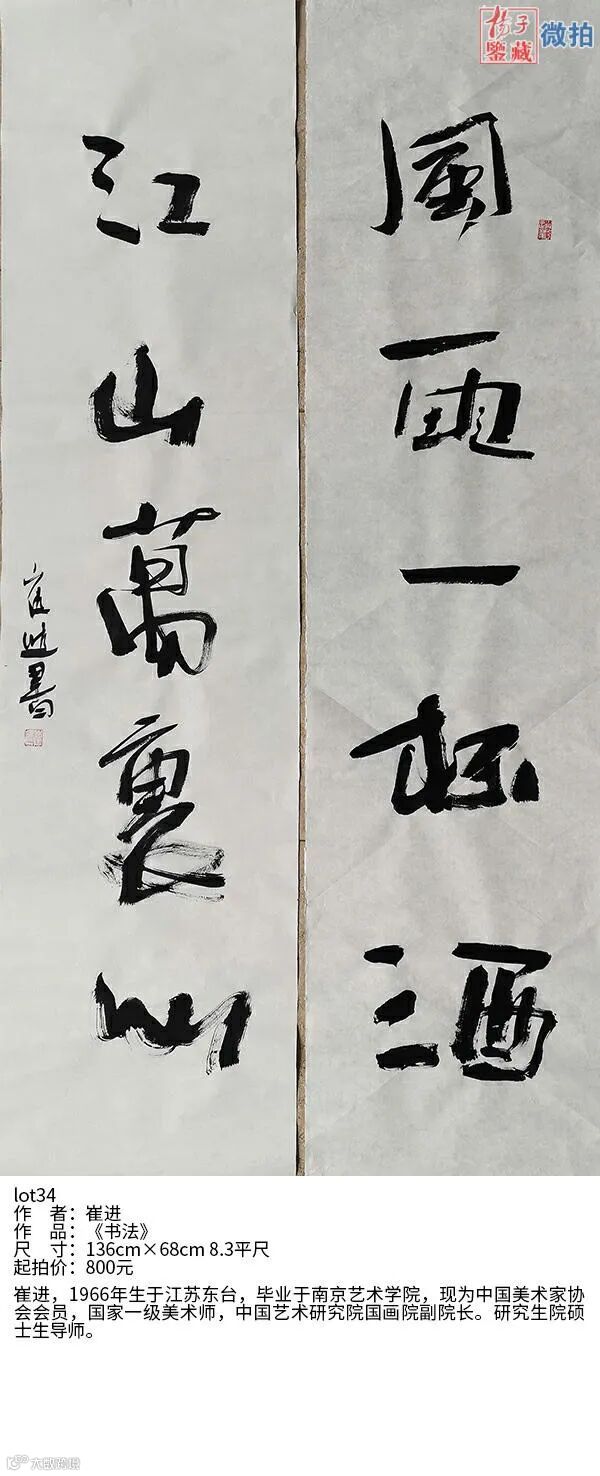 杨子
鑒藏
微拍
風雨一杯酒
江山萬裏心
崔进書
lot34
作 者：崔进
作 品：《书法》
尺 寸：136cm×68cm 8.3平尺
起拍价：800元
崔进，1966年生于江苏东台，毕业于南京艺术学院，现为中国美术家协
会会员，国家一级美术师，中国艺术研究院国画院副院长。研究生院硕
士生导师。